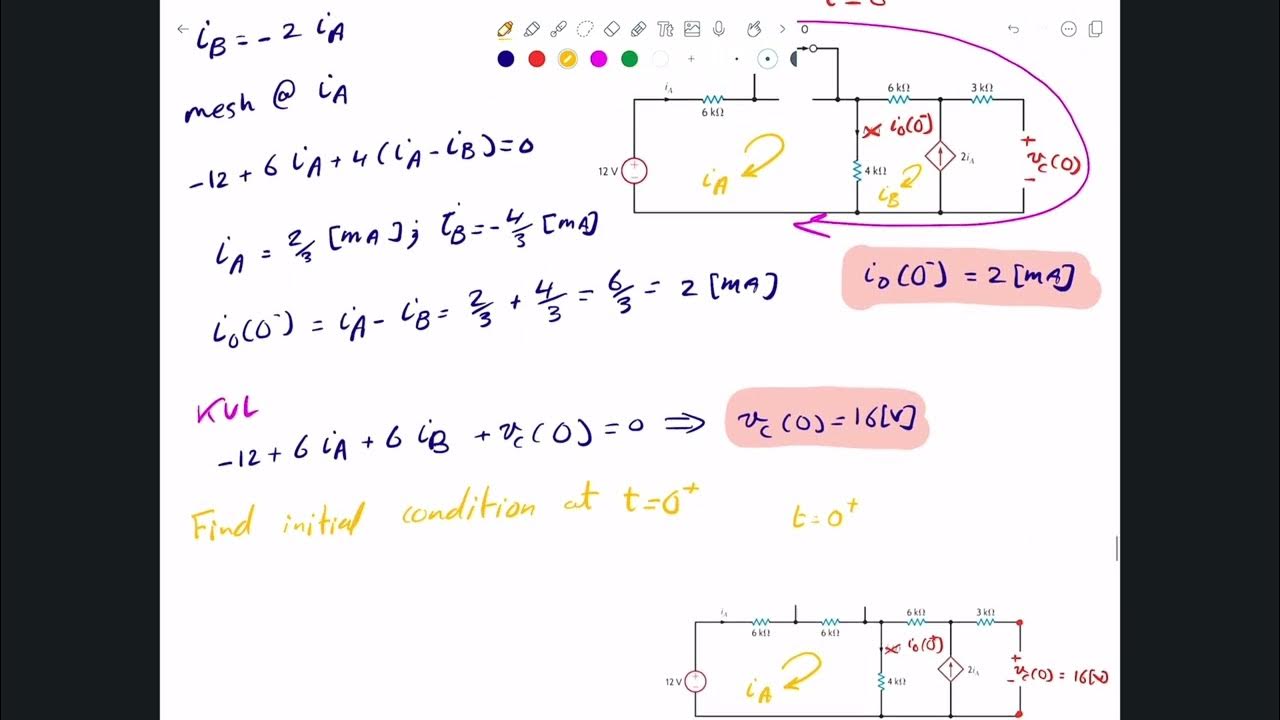 t=0
i_B = - 2 i_A
Tt
0
mesh @ i_A
i_A
6 kΩ
6 kΩ
3 kΩ
i_0(0⁻)
-12 + 6 i_A + 4 (i_A - i_B) = 0
12 V
+
-
i_A
4 kΩ
i_B
2i_A
+
v_c(0)
-
i_A = 2/3 [mA] ; i_B = - 4/3 [mA]
i_0(0⁻) = 2 [mA]
i_0(0⁻) = i_A - i_B = 2/3 + 4/3 = 6/3 = 2 [mA]
KVL
-12 + 6 i_A + 6 i_B + v_c(0) = 0 ⇒ v_c(0) = 16 [V]
Find initial condition at t=0⁺
t = 0⁺
i_A
6 kΩ
6 kΩ
6 kΩ
3 kΩ
i_0(0⁺)
12 V
+
-
i_A
4 kΩ
2i_A
+
-
v_c(0) = 16[V]